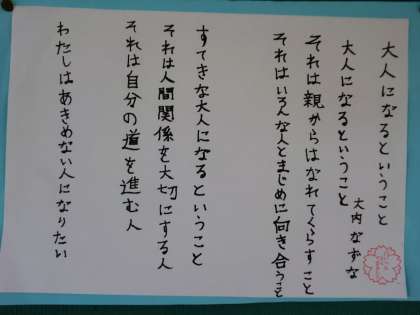 大人になるということ
大内なずな
大人になるということ
それは親からはなれてくらすこと
それはいろんな人とまじめに向き合うこと
すてきな大人になるということ
それは人間関係を大切にする人
それは自分の道を進む人
わたしはあきめない人になりたい